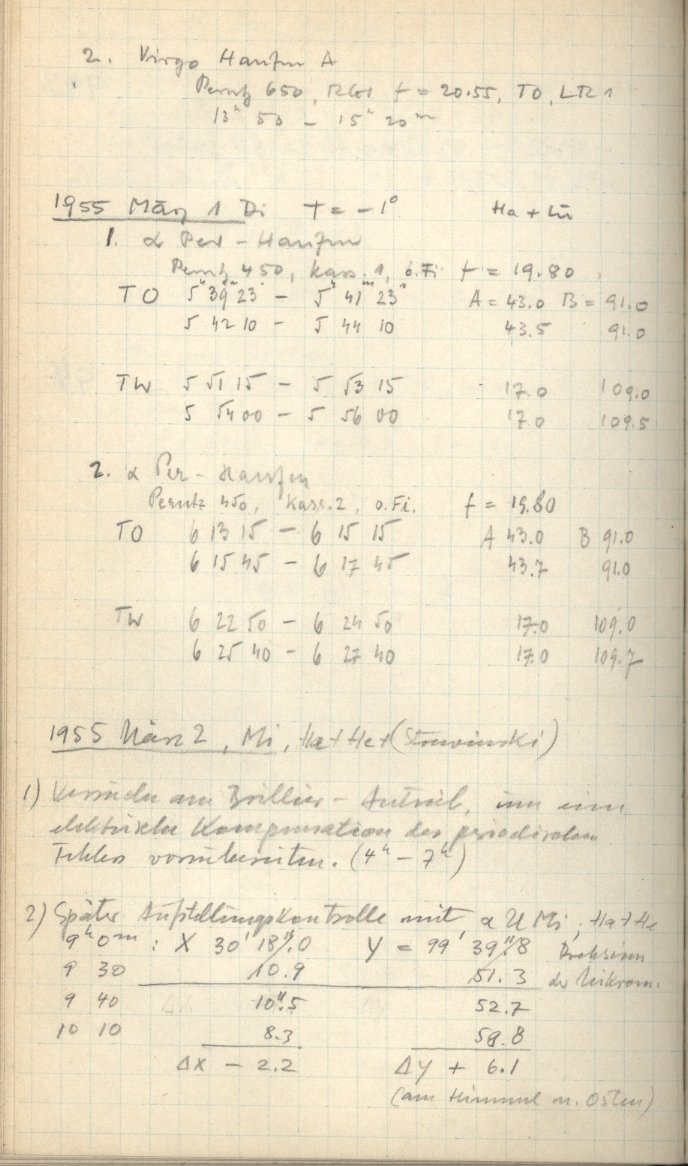 2. Virgo Haufen A
Perutz 650, RG1 f = 20.55, TO, LR 1
13h 50 - 15h 20m
1955 März 1 Di T = -1° Ha + Lü
1. α Per - Haufen
Perutz 450, Kass. 1, o. Fi f = 19.80
TO 5h 39m 23s - 5h 41m 23s A = 43.0 B = 91.0
5 42 10 - 5 44 10 43.5 91.0
TW 5 51 15 - 5 53 15 17.0 109.0
5 54 00 - 5 56 00 17.0 109.5
2. α Per - Haufen
Perutz 450, Kass. 2, o. Fi. f = 19.80
TO 6 13 15 - 6 15 15 A 43.0 B 91.0
6 15 45 - 6 17 45 43.7 91.0
TW 6 22 50 - 6 24 50 17.0 109.0
6 25 40 - 6 27 40 17.0 109.7
1955 März 2, Mi, Ha + He +
1) Versuche am - Antrieb, um eine
elektrische Kompensation des periodischen
Fehlers vorzubereiten. (4h - 7h)
2) Später Aufstellungskontrolle mit α U Mi, Ha + He
9h 0m : X 30' 18".0 Y = 99' 39".8 Drehsinn
9 30 10.9 51.3 der Mikrom.
9 40 10".5 52.7
10 10 8.3 58.8
ΔX - 2.2 ΔY + 6.1
(am Himmel n. Osten)